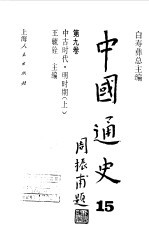 白寿彝总主编
中國通史
15
第九卷
中古时代·明时期(上)
王毓铨 主编
周振甫題
上海人民出版社